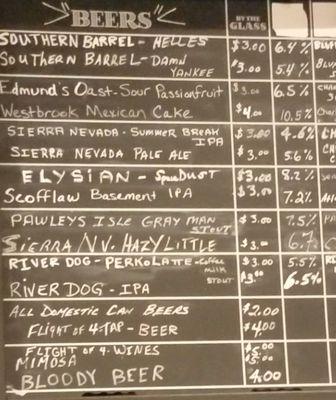 BEERS BY THE GLASS
SOUTHERN BARREL - HELLES $3.00 6.4%
SOUTHERN BARREL - DAMN YANKEE $3.00 5.4%
Edmund's Oast - Sour Passionfruit $3.00 6.5%
Westbrook Mexican Cake $4.00 10.5%
SIERRA NEVADA - SUMMER BREAK IPA $3.00 4.6%
SIERRA NEVADA PALE ALE $3.00 5.6%
ELYSIAN - SpaceDUST $3.00 8.2%
Scofflaw Basement IPA $3.00 7.2%
PAWLEYS ISLE GRAY MAN STOUT $3.00 7.5%
SIERRA NV. HAZY LITTLE $3.00 6.7
RIVER DOG - PERKOLATTE - Coffee milk STOUT $3.00 5.5%
RIVER DOG - IPA $3.00 6.5%
ALL DOMESTIC CAN BEERS $2.00
FLIGHT OF 4-TAP - BEER $4.00
FLIGHT OF 4. WINES $5.00
MIMOSA
BLOODY BEER 4.00